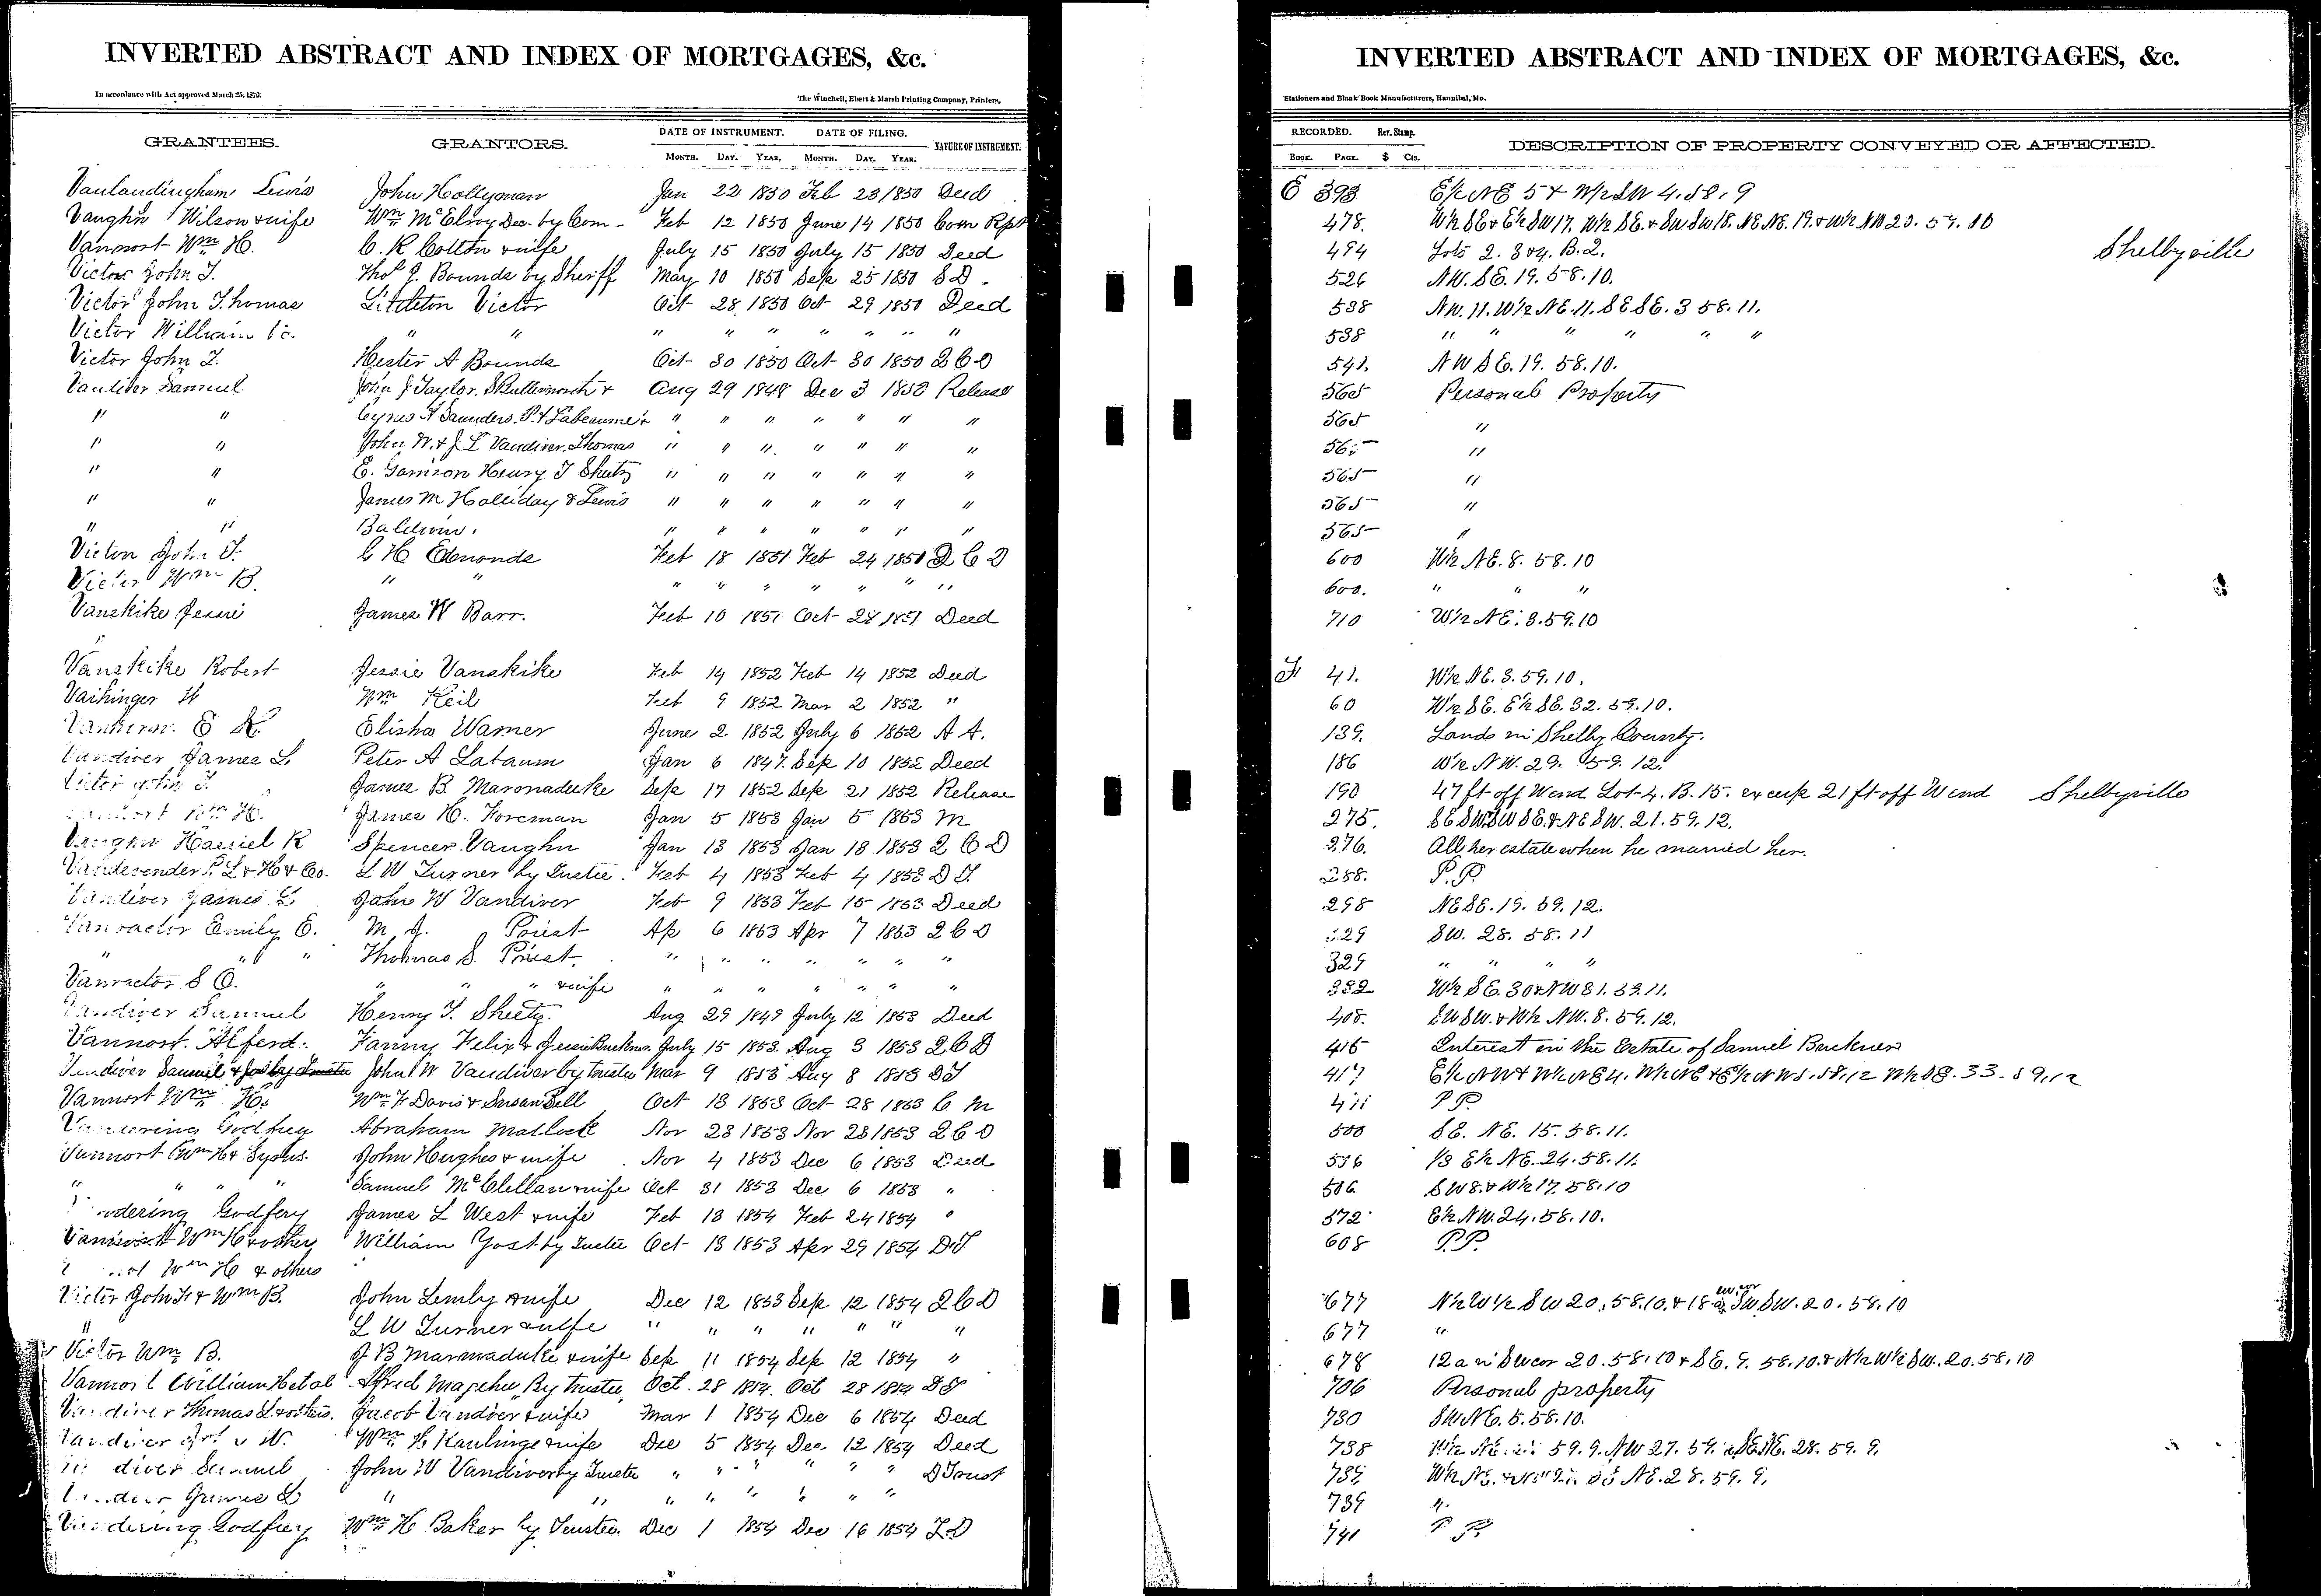 INVERTED ABSTRACT AND INDEX OF MORTGAGES, &c.
In accordance with Act approved March 25, 1870.
The Winchell, Ebert & Marsh Printing Company, Printers,
GRANTEES. GRANTORS. DATE OF INSTRUMENT. DATE OF FILING. NATURE OF INSTRUMENT.
MONTH. DAY. YEAR. MONTH. DAY. YEAR.
Vanlandingham Lewis John Hollyman Jan 22 1850 Feb 23 1850 Deed
Vaughn Wilson & wife Wm McElroy Dec. by Com - Feb 12 1850 June 14 1850 Com Rpt
Vannort Wm H. C. K Cotton & wife July 15 1850 July 15 1850 Deed
Victor John T. Thos J. Bounds by Sheriff May 10 1850 Sep 25 1850 S D.
Victor John Thomas Littleton Victor Oct 28 1850 Oct 29 1850 Deed
Victor William C. " " " " " " " " "
Victor John T. Hester A Bounds Oct 30 1850 Oct 30 1850 2 C D
Vandiver Samuel John J Taylor. S Butterworth & Aug 29 1848 Dec 3 1850 Release
" " Cyrus A Saunders. P. A Labeaume & " " " " " " "
" " John W. & J L Vandiver. Thomas " " " " " " "
" " E. Garrison Henry T Sheetz " " " " " " "
" " James M Holliday & Lewis " " " " " " "
" " Baldwin. " " " " " " "
Victor John T. C H Edmonds Feb 18 1851 Feb 24 1851 2 C D
Victor Wm B. " " " " " " " " "
Vanskike Jessie James W Barr. Feb 10 1851 Oct 28 1851 Deed
Vanskike Robert Jessie Vanskike Feb 14 1852 Feb 14 1852 Deed
Vaihinger W Wm Keil Feb 9 1852 Mar 2 1852 "
Vanhorn E K. Elisha Warner June 2. 1852 July 6 1852 A A.
Vandiver James L Peter A Labaum Jan 6 1847. Sep 10 1852 Deed
Victor John T. James B. Marmaduke Sep 17 1852 Sep 21 1852 Release
Vannort Wm H. James H. Foreman Jan 5 1853 Jan 5 1853 M
Vaughn Harriel K Spencer Vaughn Jan 13 1853 Jan 18 1853 2 C D
Vandevender P. L & H & Co. L W Turner by Trustee. Feb 4 1853 Feb 4 1853 D T.
Vandiver James L John W Vandiver Feb 9 1853 Feb 15 1853 Deed
Vanvactor Emily E. M J. Priest Ap 6 1853 Apr 7 1853 2 C D
" " " Thomas S. Priest. " " " " " " "
Vanvactor S O. " " " & wife " " " " " " "
Vandiver Samuel Henry T. Sheetz. Aug 29 1849 July 12 1853 Deed
Vannort. Alferd. Fanny Felix & Jessie Buckner. July 15 1853. Aug 3 1853 2 C D
Vandiver Samuel & Jos John W Vandiver by trustee Mar 9 1853 Aug 8 1853 D T
Vannort Wm H. Wm F Davis & Susan Bell Oct 13 1853 Oct 28 1853 C M
Vandering Godfrey Abraham Matlock Nov 23 1853 Nov 23 1853 2 C D
Vannort Wm H & Syphus. John Hughes & wife. Nov 4 1853 Dec 6 1853 Deed
" " " " Samuel McClellan & wife Oct 31 1853 Dec 6 1853 "
Vandering Godfery James L West & wife Feb 13 1854 Feb 24 1854 "
Vannort Wm H & others William Yost by Trustee Oct 13 1853 Apr 29 1854 D T
Wm H & others
Victor John T & Wm B. John Lemly & wife Dec 12 1853 Sep 12 1854 2 C D
" L W Turner & wife " " " " " " "
Victor Wm B. J B Marmaduke & wife Sep 11 1854 Sep 12 1854 "
Vannort William H et al Alfred Magehee By trustee Oct. 28 1854. Oct 28 1854 D T
Vandiver Thomas L & others. Jacob Vandiver & wife Mar 1 1854 Dec 6 1854 Deed
Vandiver W. Wm H Kaulinge & wife Dec 5 1854 Dec. 12 1854 Deed
Vandiver Samuel John W Vandiver by Trustee " " " " " " D Trust
James L " " " " " " " "
Vandering Godfrey Wm H Baker by Trustee. Dec 1 1854 Dec 16 1854 T D
INVERTED ABSTRACT AND INDEX OF MORTGAGES, &c.
Stationers and Blank Book Manufacturers, Hannibal, Mo.
RECORDED. Rev. Stamp. DESCRIPTION OF PROPERTY CONVEYED OR AFFECTED.
BOOK. PAGE. $ Cts.
E 393 E½ NE 5 & W½ SW 4. 58. 9
478. W½ SE & E½ SW 17. W½ SE. & SW SW 18. NE NE. 19. & W½ NW 20. 59. 10
494 Lots 2. 3 & 4. B. 2. Shelbyville
526 NW. SE. 19. 58. 10.
538 NW. 11. W½ NE. 11. SE SE. 3 58. 11.
538 " " " " " "
541. NW SE. 19. 58. 10.
565 Personal Property
565 "
565 "
565 "
565 "
565 "
600 W½ NE. 8. 58. 10
600. " " "
710 W½ NE. 3. 59. 10
F 41. W½ NE. 3. 59. 10.
60 W½ SE. E½ SE. 32. 59. 10.
139. Lands in Shelby County.
186 W½ NW. 29. 59. 12.
190 47 ft off W end Lot 4. B. 15. except 21 ft off W end Shelbyville
275. SE SW. SW SE. & NE SW. 21. 59. 12.
276. All her estate when he married her.
288. P. P.
298 NE SE. 19. 59. 12.
329 SW. 28. 58. 11
329 " " " "
332 W½ SE. 30 & NW 31. 59. 11.
408. SW SW. & W½ NW. 8. 59. 12.
415 Interest in the Estate of Samuel Buckner
417 E½ NW & W½ NE 4. W½ NE & E½ NW 5. 58. 12 W½ SE. 33. 59. 12
411 P P.
500 SE. NE. 15. 58. 11.
536 ⅓ E½ NE. 24. 58. 11.
506 SW 8. & W½ 17. 58. 10
572 E½ NW. 24. 58. 10.
608 P. P.
677 N½ W½ SW 20. 58. 10. & 18 a SW SW. 20. 58. 10
677 "
678 12 a in SW cor 20. 58. 10 & SE. 9. 58. 10. & N½ W½ SW. 20. 58. 10
706 Personal property
730 SW NE. 5. 58. 10.
738 W½ NE. 59. 9. NW 27. 59. & SE NE. 28. 59. 9.
739 W½ NE. NE. 28. 59. 9.
739 "
741 P P.